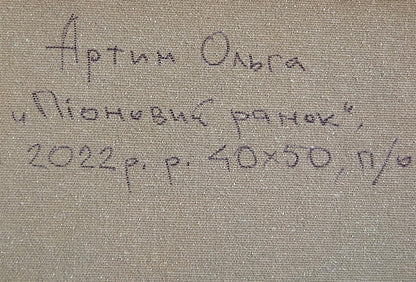 Артим Ольга
„Піоновий ранок“,
2022р. р. 40×50, п/о